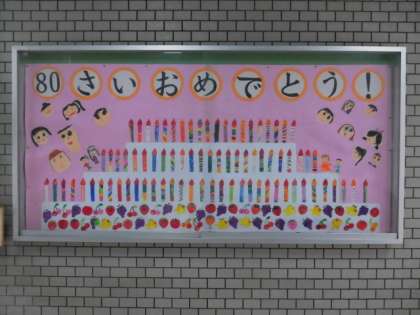 80さいおめでとう!